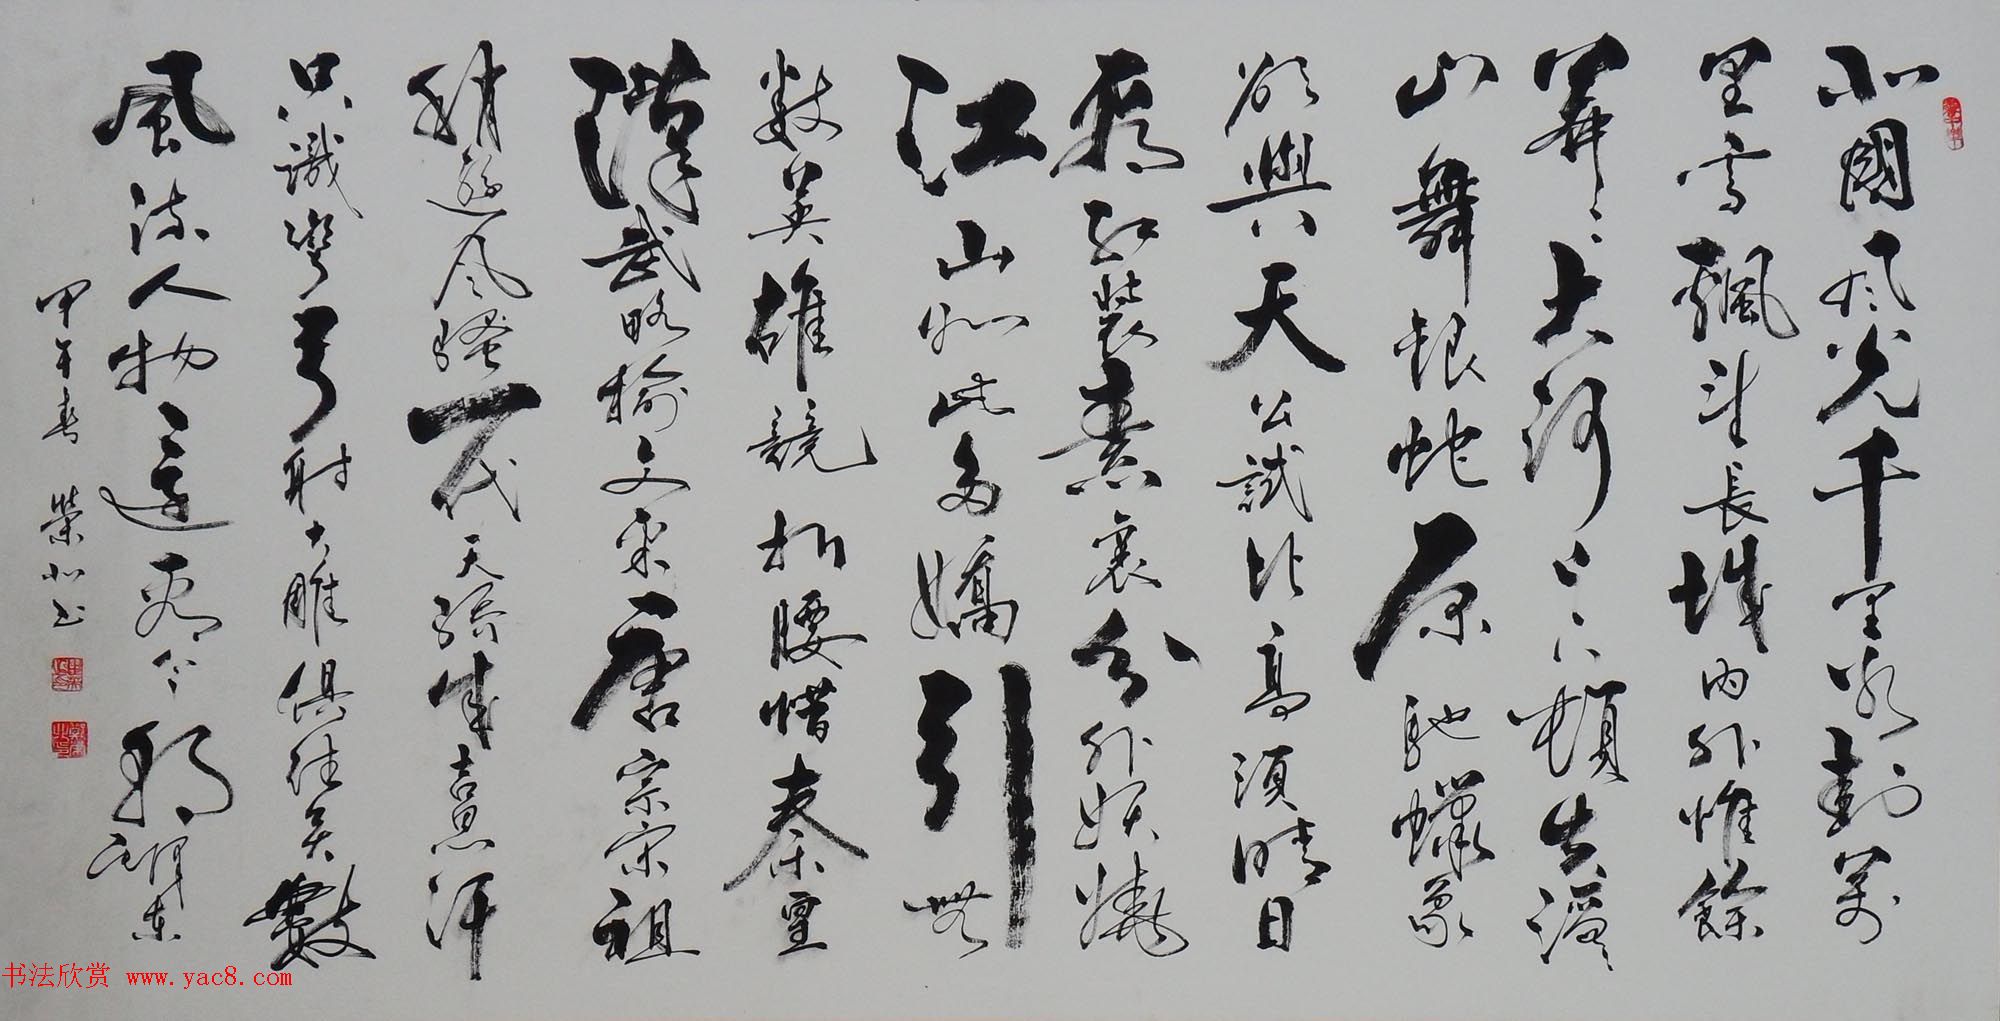 北國風光千里冰封萬
里雪飄望長城内外惟餘
莽莽大河上下頓失滔滔
山舞银蛇原馳蠟象
欲與天公試比高須晴日
看红裝素裹分外妖嬈
江山如此多嬌引無
数英雄競折腰惜秦皇
漢武略輸文采唐宗宋祖
稍遜風騷一代天驕成吉思汗
只識彎弓射大雕俱往矣數
風流人物還看今朝 毛澤東
甲午春 榮北书
书法欣赏 www.yac8.com